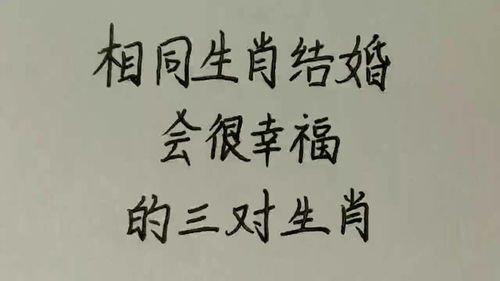 相同生肖结婚
会很幸福
的三对生肖